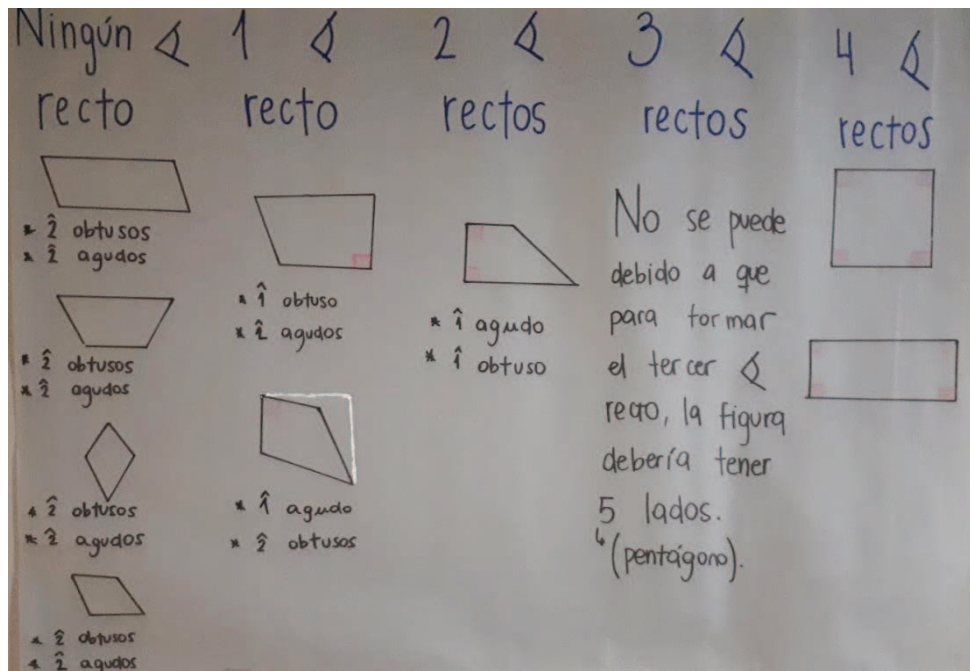 Ningún ∢
recto
* 2̂ obtusos
* 2̂ agudos
* 2̂ obtusos
* 2̂ agudos
* 2̂ obtusos
* 2̂ agudos
* 2̂ obtusos
* 2̂ agudos
1 ∢
recto
* 1̂ obtuso
* 2̂ agudos
* 1̂ agudo
* 2̂ obtusos
2 ∢
rectos
* 1̂ agudo
* 1̂ obtuso
3 ∢
rectos
No se puede
debido a que
para formar
el tercer ∢
recto, la figura
debería tener
5 lados.
↳ (pentágono).
4 ∢
rectos